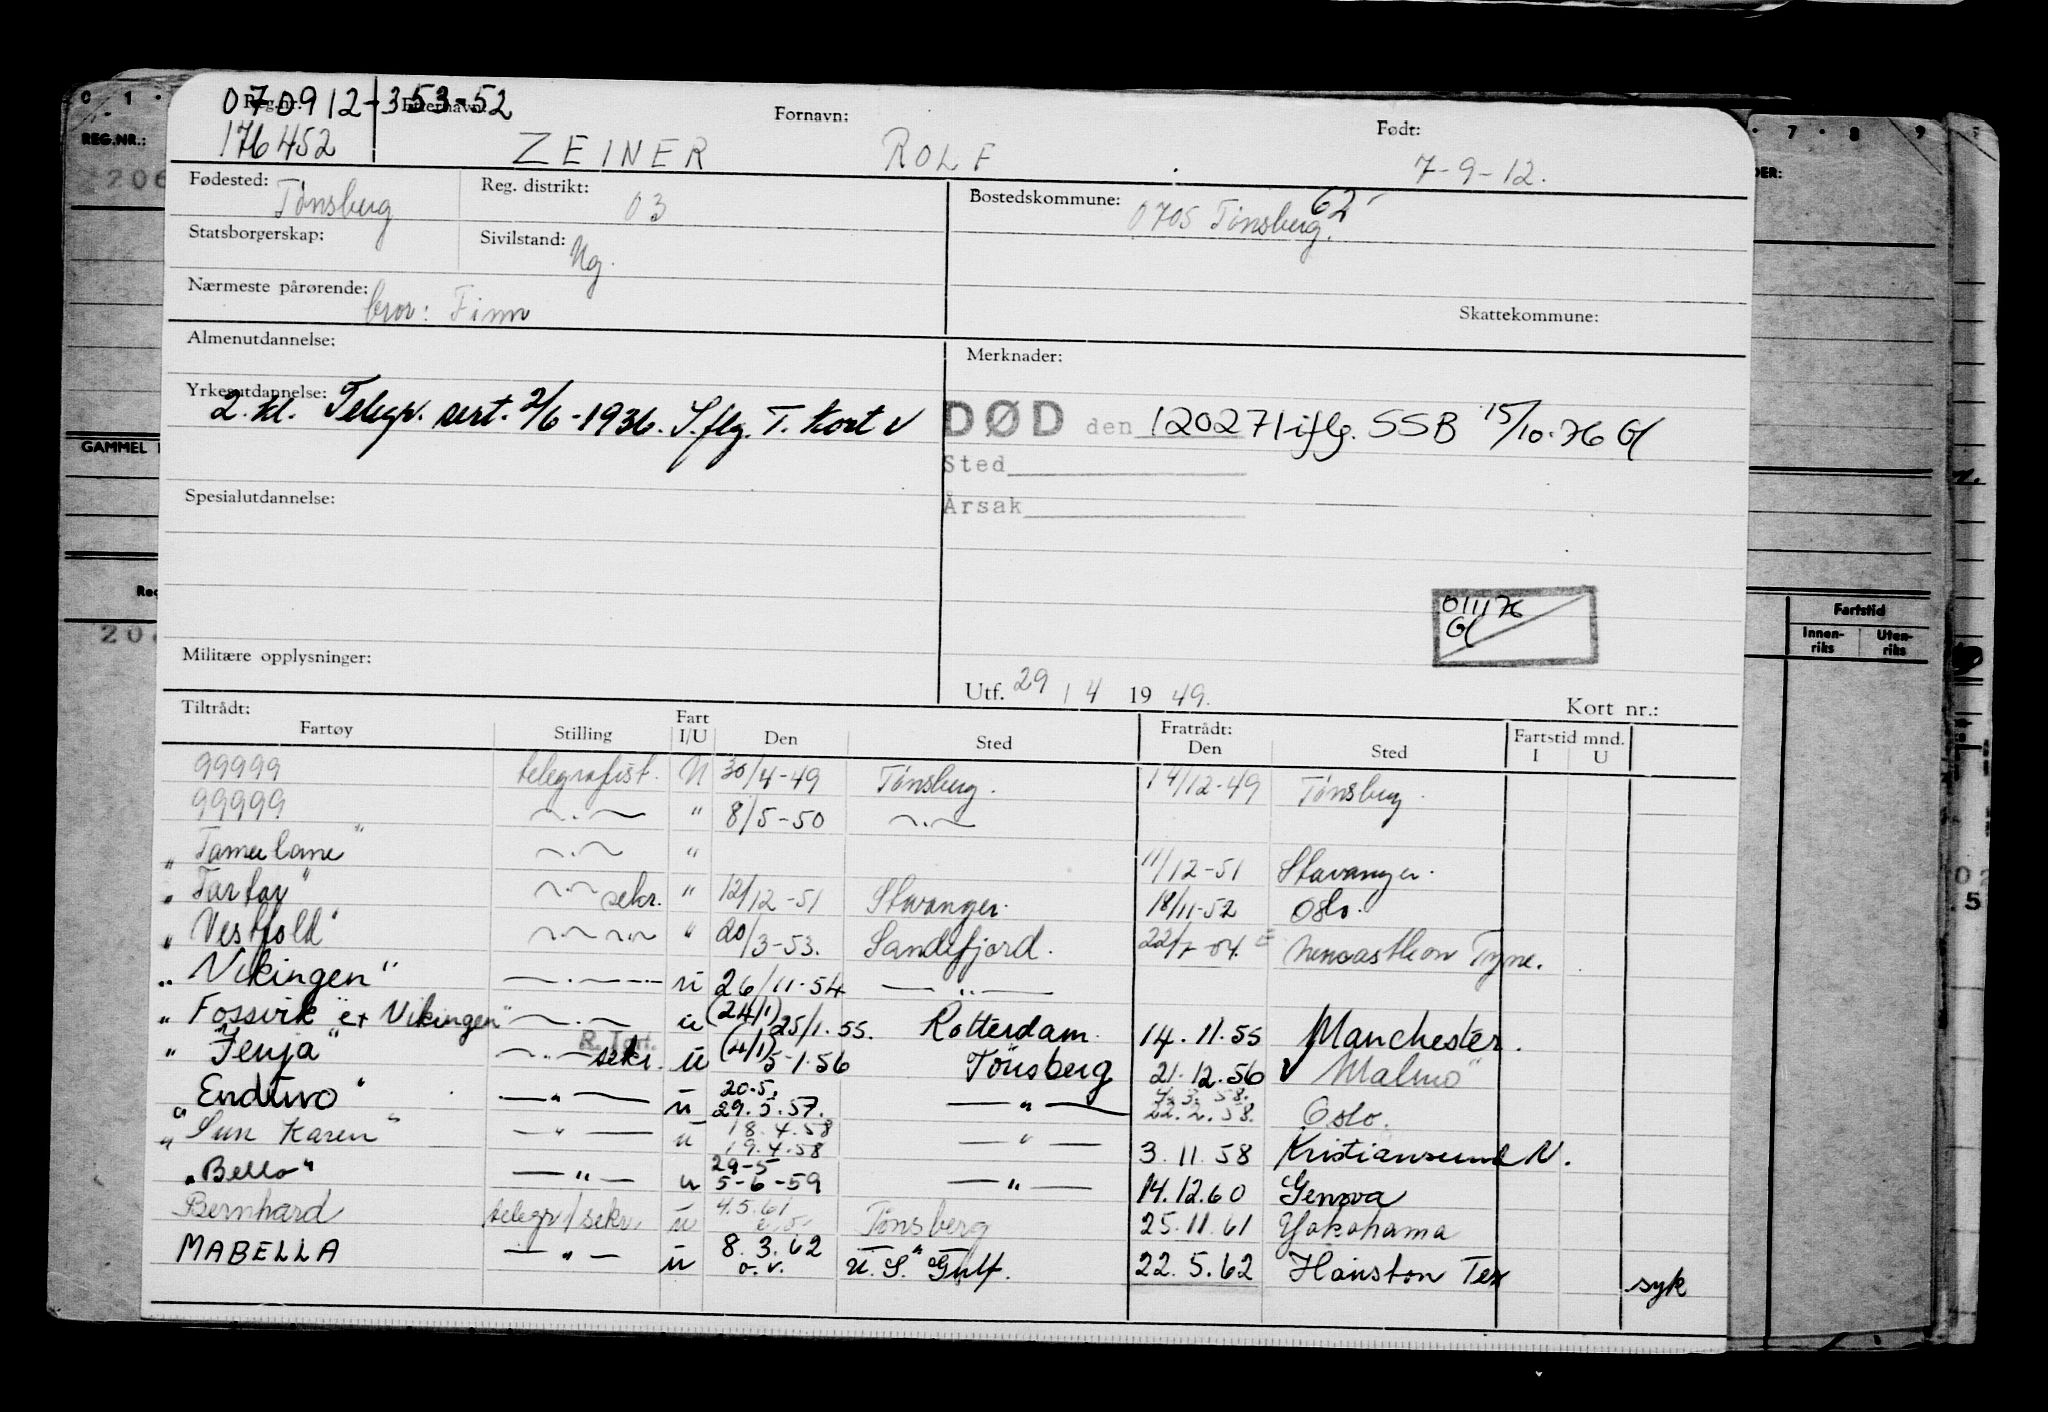 070912-353-52
Reg.nr.: Etternavn: Fornavn: Født:
176452 ZEINER ROLF 7-9-12.
Fødested: Tønsberg Reg. distrikt: 03 Bostedskommune: 0705 Tønsberg. 62
Statsborgerskap: Sivilstand: Ug.
Nærmeste pårørende: bror: Finn Skattekommune:
Almenutdannelse: Merknader:
Yrkesutdannelse: 2. kl. Telegr. sert. 2/6-1936. S.flg. T. Kort
DØD den 120271 iflg. SSB 15/10-76 Gl
Sted
Spesialutdannelse: Årsak
011176
Gl
Militære opplysninger:
Utf. 29 / 4 19 49. Kort nr.:
Tiltrådt: Fart Fratrådt: Fartstid mnd.
Fartøy Stilling I/U Den Sted Den Sted I U
99999 telegrafist. U 30/4-49 Tønsberg. 14/12-49 Tønsberg
99999 —.— " 8/5-50 —.—
"Tamerlane" —.— " 11/12-51 Stavanger.
"Tartar" —.— sekr. " 12/12-51 Stavanger. 18/11-52 Oslo.
"Vestfold" —.— —.— " 20/3-53. Sandefjord. Tyne.
"Vikingen" —.— —.— u 26/11-54 — " —
"Fossvik" ex Vikingen" —.— u (24/1) 25/1.55. Rotterdam 14.11.55 Manchester.
"Fenja" —.— sekr. u (4/1) 5-1.56 Tönsberg 21.12.56 Malmö
"Enduro" — " — u 20.5. 29.5.57. — " — 4.3.58. 22.2.58. Oslo.
"Sun Karen" — " — u 18.4.58 19.4.58 — " — 3.11.58 Kristiansund N.
"Bello" — " — u 29-5 5-6-59 — " — 14.12.60 Genova
Bernhard telegr/sekr. u 4.5.61 Tønsberg 25.11.61 Yokohama
MABELLA — " — u 8.3.62 o.v. U.S. Gulf. 22.5.62 Houston Tex syk
REG.NR.:
GAMMEL
Fartstid
Innen-riks Uten-riks